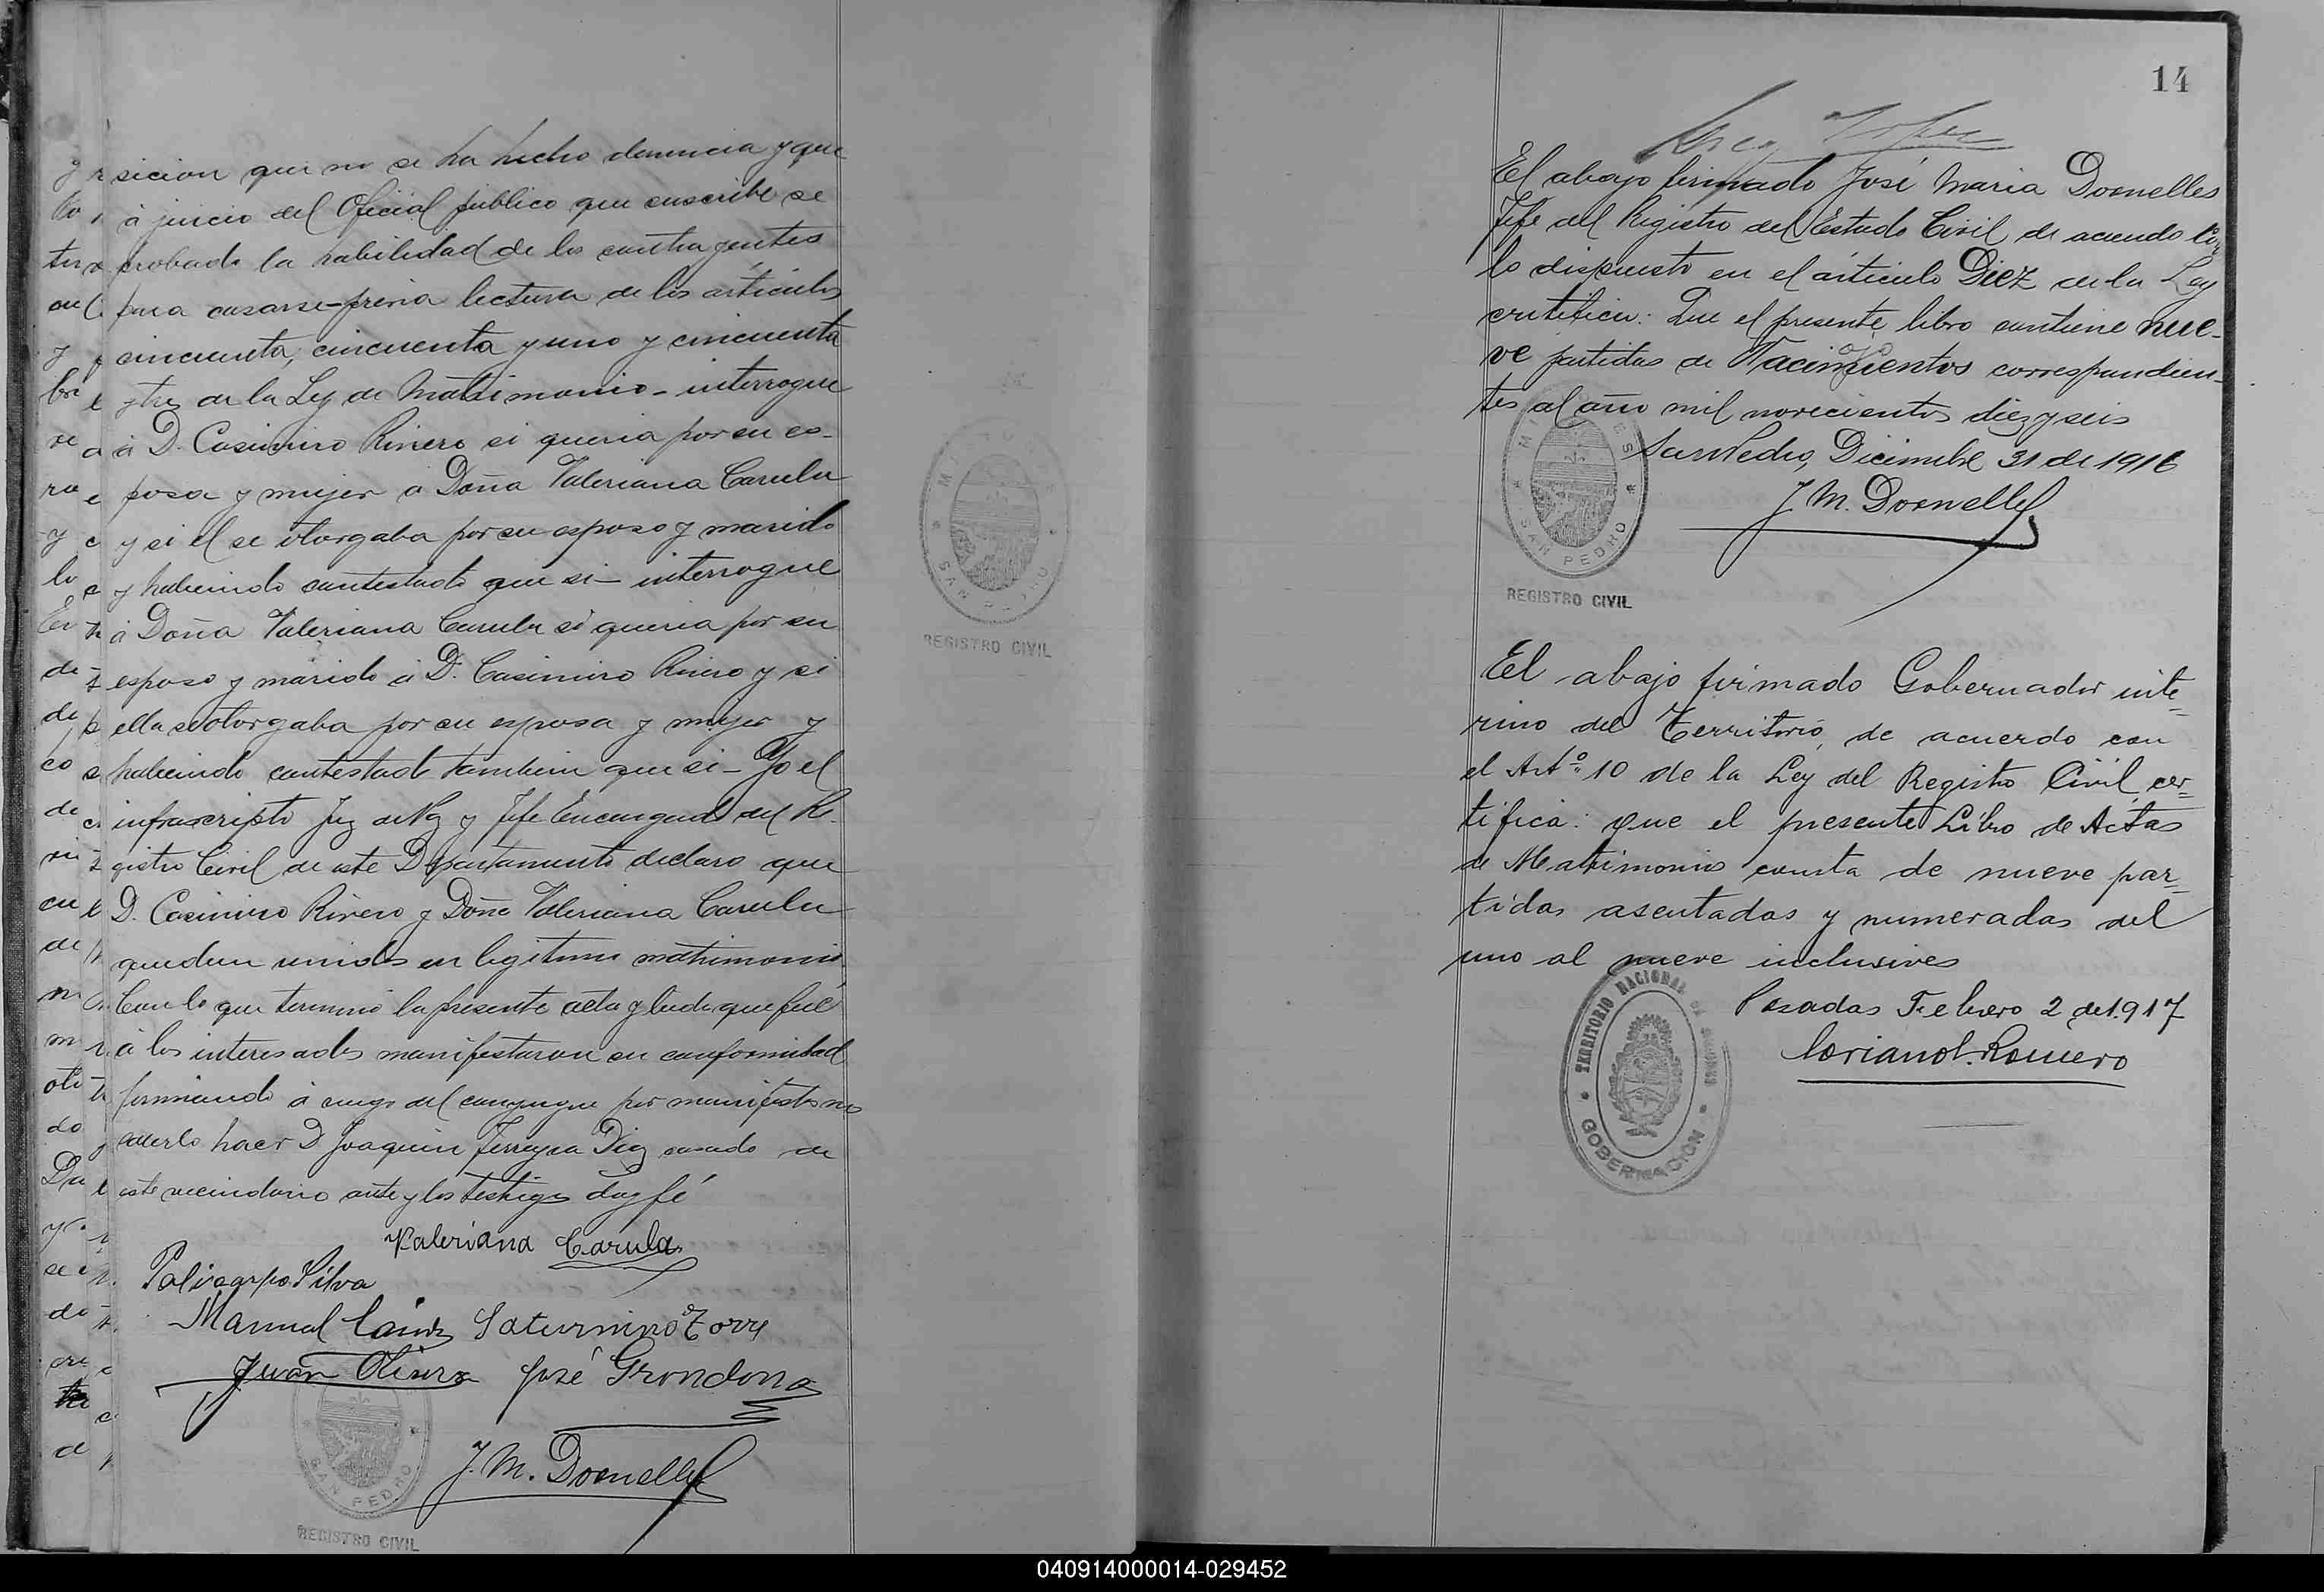 sicion que no se ha hecho denuncia y que
á juicio del Oficial público que suscribe se
probado la habilidad de los contrayentes
para casarse - previa lectura de los artículos
cincuenta, cincuenta y uno y cincuenta
y tres de la Ley de Matrimonio - interrogue
á D. Casimiro Rivero si queria por su es-
posa y mujer a Doña Valeriana Carula
y si el se otorgaba por su esposo y marido
y habiendo contestado que si - interrogue
á Doña Valeriana Carula si queria por su
esposo y marido á D. Casimiro Rivero y si
ella se otorgaba por su esposa y mujer y
habiendo contestado tambien que si - Yo el
infrascripto Juez de Paz y Jefe Encargado del Re-
gistro Civil de este Departamento declaro que
D. Casimiro Rivero y Doña Valeriana Carula
quedan unidos en legitimo matrimonio.
Con lo que termino la presente acta y leida que fué
á los interesados manifestaron su conformidad
firmando á ruego del conyugue por manifestar no
saberlo hacer D Joaquin Ferreyra Diaz casado de
este vecindario ante y los testigos doy fé
Valeriana Carula
Policarpo Silva
Manuel Saturnino Torre
Juan Olivera José Grondona
J. M. Dornelles
SAN PEDRO
REGISTRO CIVIL
SAN PEDRO
REGISTRO CIVIL
14
El abajo firmado José Maria Dornelles
Jefe del Registro del Estado Civil de acuerdo con
lo dispuesto en el artículo Diez de la Ley
certifica: Que el presente libro contiene nue-
ve partidas de Nacimientos correspondien-
tes al año mil novecientos diez y seis
San Pedro, Diciembre 31 de 1916
J M. Dornelles
MISIONES
SAN PEDRO
REGISTRO CIVIL
El abajo firmado Gobernador inte=
rino del Territorio, de acuerdo con
el Artº 10 de la Ley del Registro Civil, cer=
tifica: que el presente Libro de Actas
de Matrimonios consta de nueve par=
tidas asentadas y numeradas del
uno al nueve inclusives
Posadas Febrero 2 de 1.917
Romero
TERRITORIO NACIONAL DE MISIONES
GOBERNACION
040914000014-029452